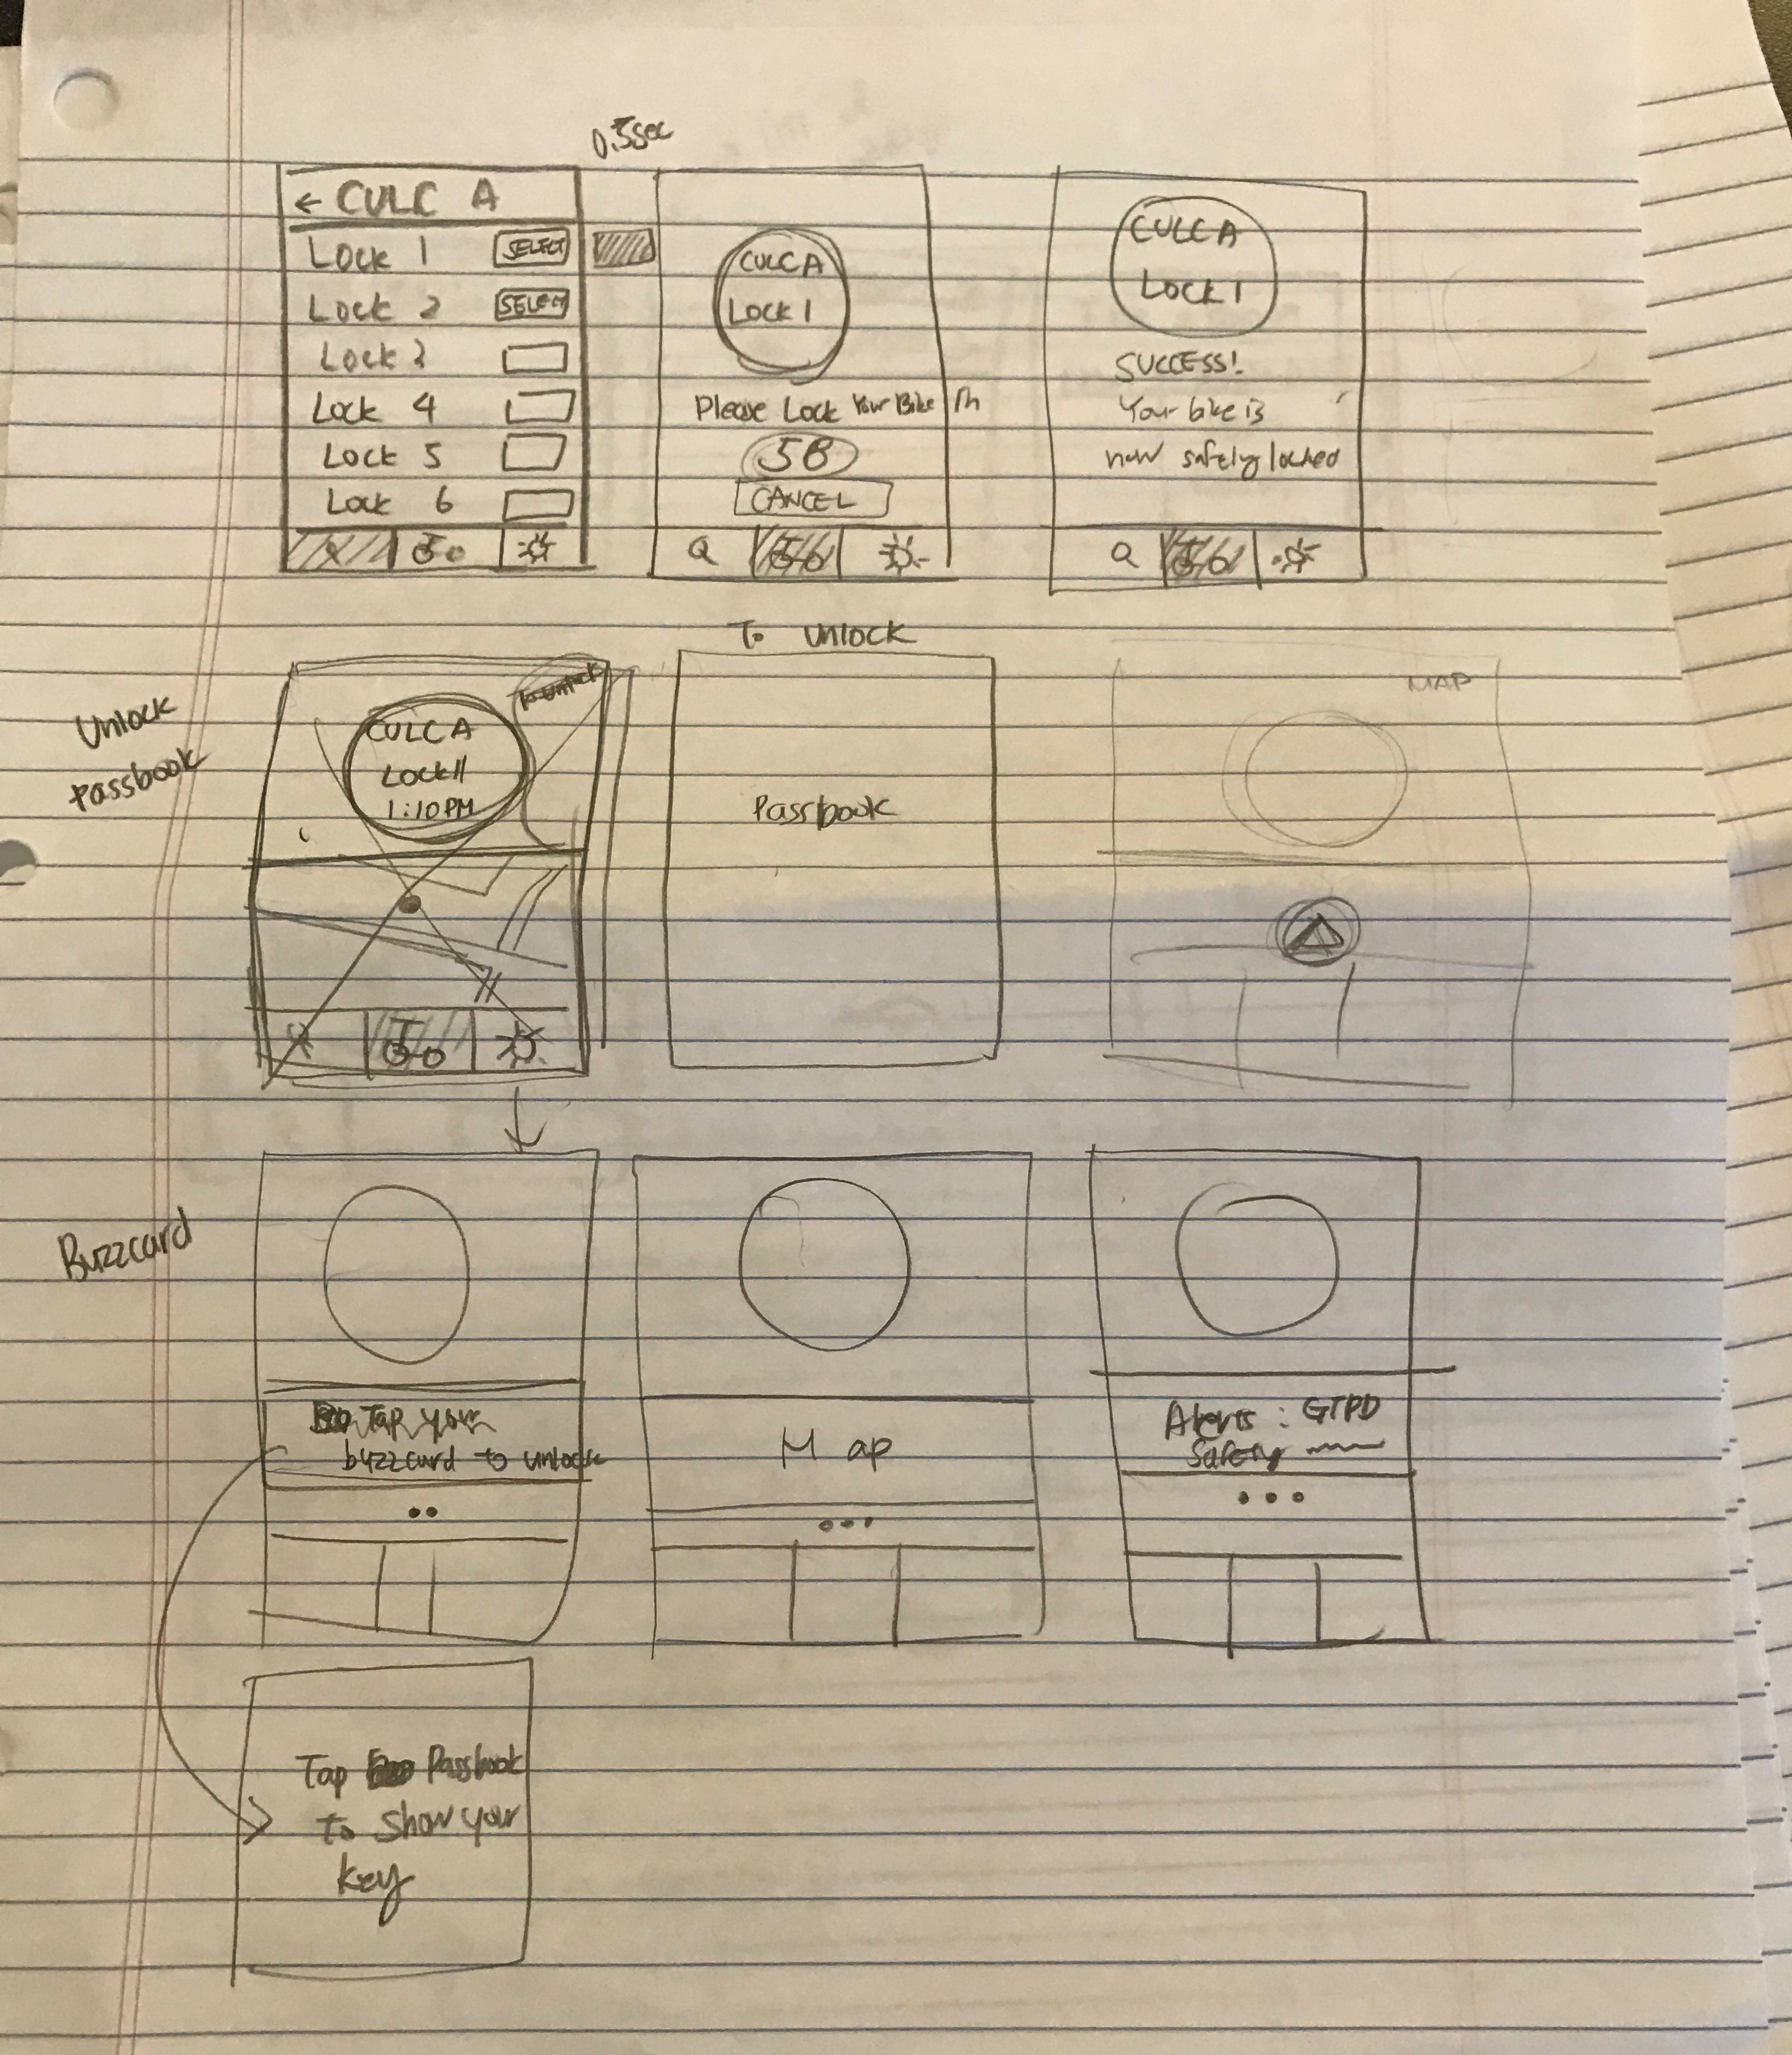 0.5sec
← CULC A
Lock 1 SELECT
Lock 2 SELECT
Lock 3
Lock 4
Lock 5
Lock 6
CULC A
LOCK 1
Please Lock Your Bike In
58
CANCEL
Q
CULC A
LOCK 1
SUCCESS!
Your bike is
now safely locked
Q
Unlock
Passbook
To unlock
CULC A
LOCK 11
1:10PM
To unlock
Passbook
MAP
Buzzcard
Tap your
buzzcard to unlock
Map
Alerts: GTPD
Safety
Tap Passbook
to show your
key